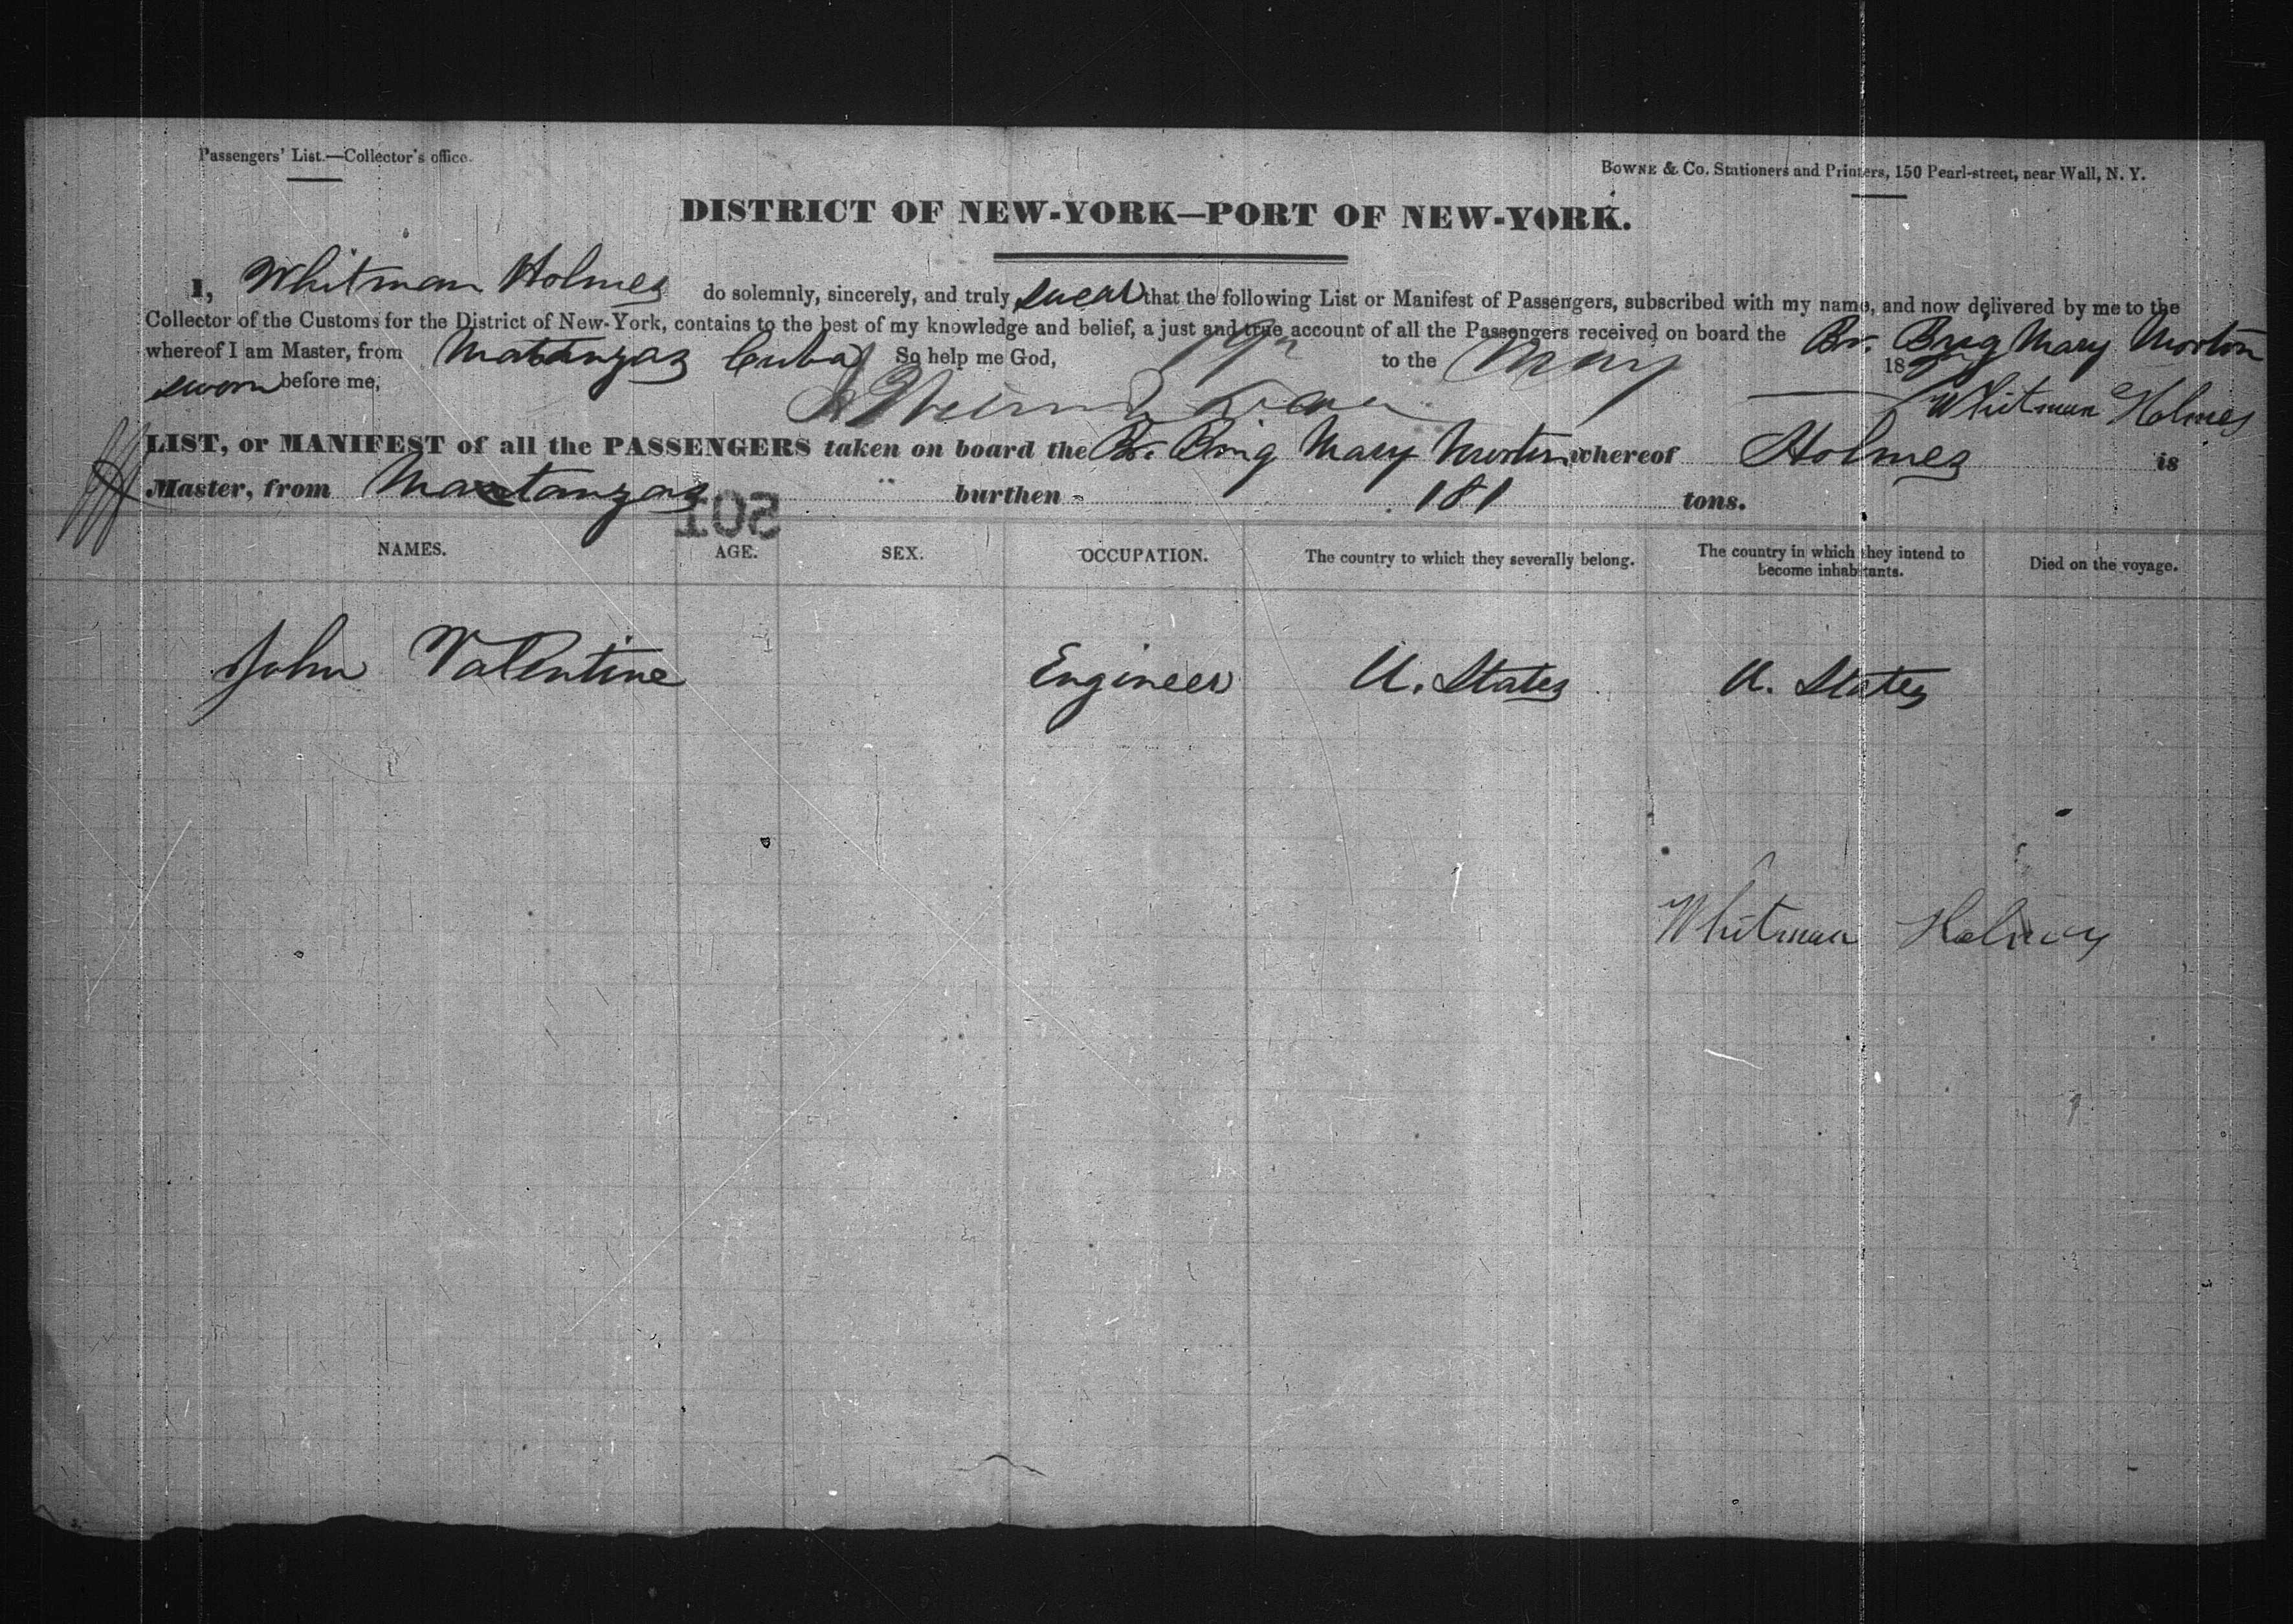 Passengers' List.—Collector's office.
BOWNE & Co. Stationers and Printers, 150 Pearl-street, near Wall, N. Y.
DISTRICT OF NEW-YORK—PORT OF NEW-YORK.
I, Whitman Holmes do solemnly, sincerely, and truly swear that the following List or Manifest of Passengers, subscribed with my name, and now delivered by me to the
Collector of the Customs for the District of New-York, contains to the best of my knowledge and belief, a just and true account of all the Passengers received on board the Br. Brig Mary Morton
whereof I am Master, from Matanzas Cuba So help me God, to the May 18
sworn before me, Whitman Holmes
LIST, or MANIFEST of all the PASSENGERS taken on board the Br. Brig Mary Morton whereof Holmes is
Master, from Matanzas burthen 181 tons.
NAMES. AGE. SEX. OCCUPATION. The country to which they severally belong. The country in which they intend to become inhabitants. Died on the voyage.
John Valentine Engineer U. States U. States
Whitman Holmes